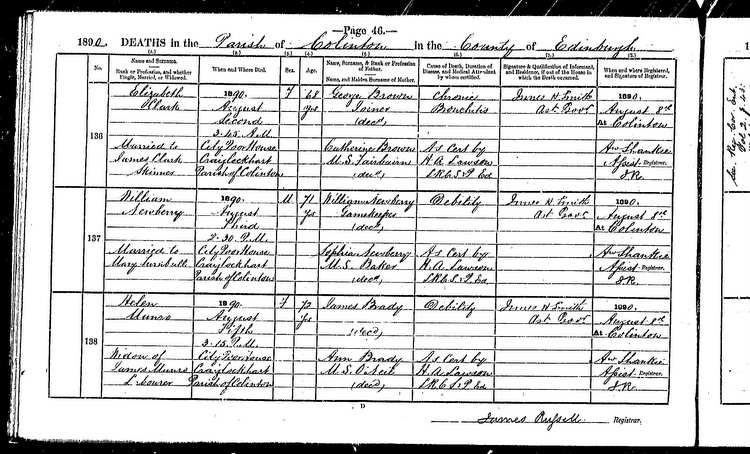 —Page 46.—
1890. DEATHS in the Parish of Colinton in the County of Edinburgh
(1.) (2.) (3.) (4.) (5.) (6.) (7.) (8.)
No.
Name and Surname.
Rank or Profession, and whether Single, Married, or Widowed.
When and Where Died.
Sex.
Age.
Name, Surname, & Rank or Profession of Father.
Name, and Maiden Surname of Mother.
Cause of Death, Duration of Disease, and Medical Attendant by whom certified.
Signature & Qualification of Informant, and Residence, if out of the House in which the Death occurred.
When and where Registered, and Signature of Registrar.
136
Elizabeth
Clark
Married to
James Clark
Skinner
1890.
August
Second
3.45 A.M.
City Poor House
Craiglockhart
Parish of Colinton
F
68
yrs
George Brown
Joiner
(decd)
Catherine Brown
M.S. Fairbairn
(decd)
Chronic
Bronchitis
As Cert by
H.A. Lawson
L.R.C.S.&P. Ed
James H. Smith
Ast. Govr.
1890.
August 8th
At Colinton
Aw Shankie
Assist. Registrar.
J.R.
137
William
Newberry
Married to
Mary Turnbull
1890.
August
Third
2.30 P.M.
City Poor House
Craiglockhart
Parish of Colinton
M
71
yrs
William Newberry
Gamekeeper
(decd)
Sophia Newberry
M.S. Baker
(decd)
Debility
As Cert by
H.A. Lawson
L.R.C.S.&P. Ed
James H. Smith
Ast. Govr.
1890.
August 8th
At Colinton
Aw Shankie
Assist. Registrar.
J.R.
138
Helen
Munro
Widow of
James Munro
Labourer
1890.
August
Fifth
3.15 P.M.
City Poor House
Craiglockhart
Parish of Colinton
F
72
yrs
James Brady
(decd)
Ann Brady
M.S. O'Neil
(decd)
Debility
As Cert by
H.A. Lawson
L.R.C.S.&P. Ed
James H. Smith
Ast. Govr.
1890.
August 8th
At Colinton
Aw Shankie
Assist. Registrar.
J.R.
D
James Russell Registrar.